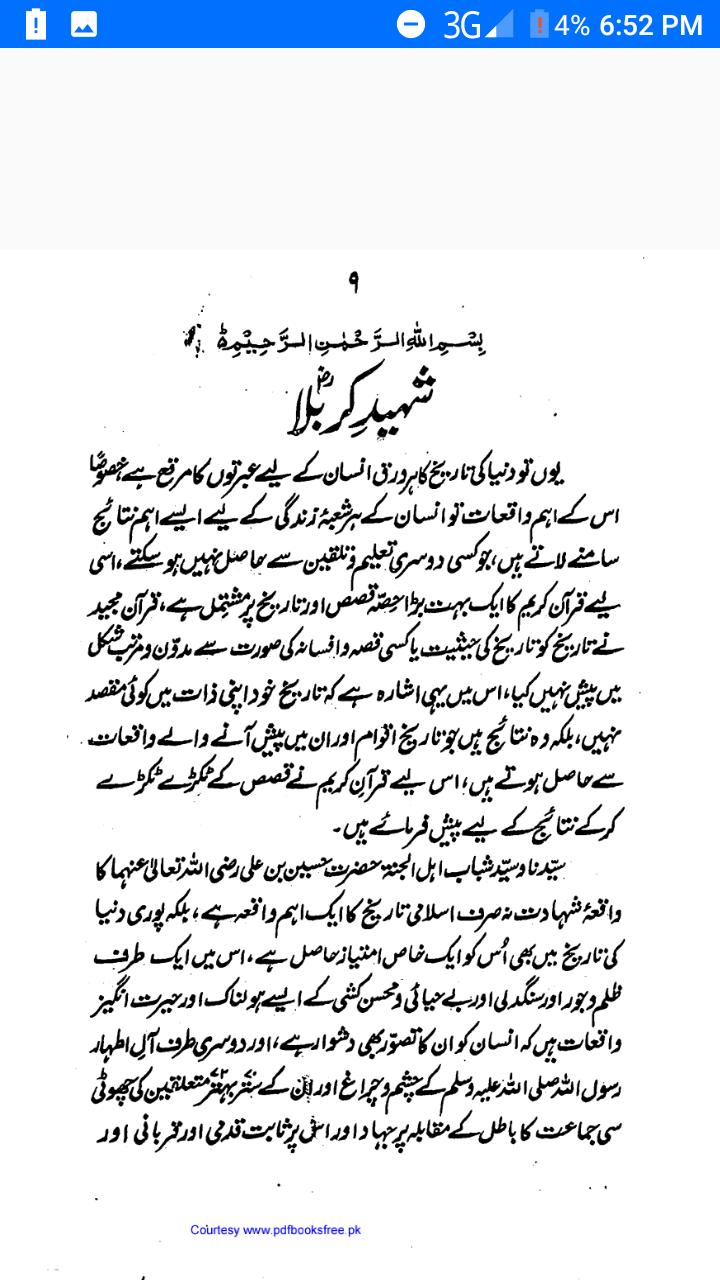 3G 4% 6:52 PM
۹
بِسْمِ اللهِ الرَّحْمٰنِ الرَّحِيْمِ
شہیدِ کربلاؓ
یوں تو دنیا کی تاریخ کا ہر ورق انسان کے لیے عبرتوں کا مرقع ہے خصوصًا
اس کے اہم واقعات تو انسان کے ہر شعبۂ زندگی کے لیے ایسے اہم نتائج
سامنے لاتے ہیں، جو کسی دوسری تعلیم و تلقین سے حاصل نہیں ہو سکتے، اسی
لیے قرآن کریم کا ایک بہت بڑا حصّہ قصص اور تاریخ پر مشتمل ہے، قرآن مجید
نے تاریخ کو تاریخ کی حیثیت یا کسی قصہ و افسانہ کی صورت سے مدوّن و مرتب شکل
میں پیش نہیں کیا، اس میں یہی اشارہ ہے کہ تاریخ خود اپنی ذات میں کوئی مقصد
نہیں، بلکہ وہ نتائج ہیں جو تاریخ اقوام اور ان میں پیش آنے والے واقعات
سے حاصل ہوتے ہیں؛ اس لیے قرآنِ کریم نے قصص کے ٹکڑے ٹکڑے
کر کے نتائج کے لیے پیش فرمائے ہیں۔
سیّدنا و سیّد شباب اہل الجنۃ حضرت حسین بن علی رضی اللہ تعالیٰ عنہما کا
واقعۂ شہادت نہ صرف اسلامی تاریخ کا ایک اہم واقعہ ہے، بلکہ پوری دنیا
کی تاریخ میں بھی اُس کو ایک خاص امتیاز حاصل ہے، اس میں ایک طرف
ظلم و جور اور سنگدلی اور بے حیائی و محسن کشی کے ایسے ہولناک اور حیرت انگیز
واقعات ہیں کہ انسان کو ان کا تصوّر بھی دشوار ہے، اور دوسری طرف آلِ اطہار
رسول اللہ صلی اللہ علیہ وسلم کے چشم و چراغ اور ان کے ستّر بہتّر متعلقین کی چھوٹی
سی جماعت کا باطل کے مقابلہ پر جہاد اور اس پر ثابت قدمی اور قربانی اور
Courtesy www.pdfbooksfree.pk